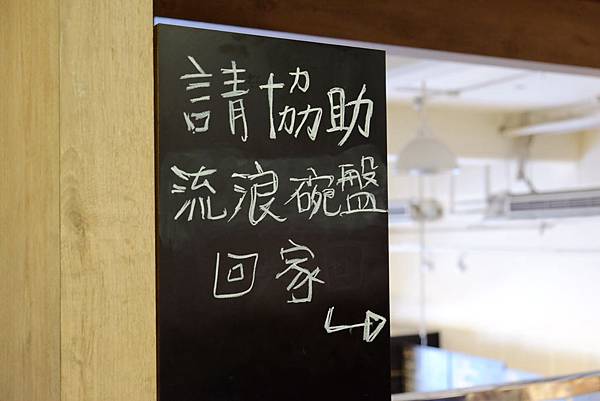 請協助
流浪碗盤
回家